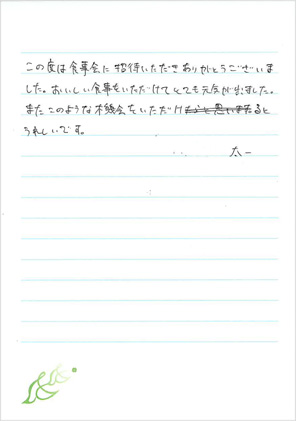 この度は食事会に招待いただきありがとうございま
した。おいしい食事をいただけてとても元気が出ました。
またこのような機会をいただけると
うれしいです。
太一